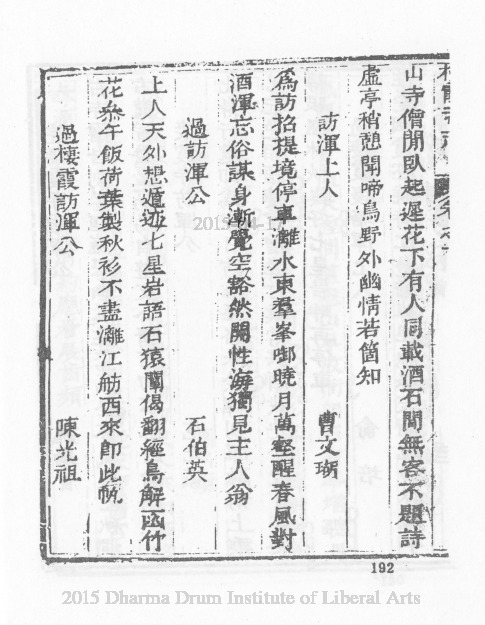 山寺僧閒臥起遲花下有人同載酒石間無客不題詩
虛亭稍憩聞啼鳥野外幽情若箇知
訪渾上人 曹文瑚
爲訪招提境停車灕水東羣峯啣曉月萬壑醒春風對
酒渾忘俗謀身漸覺空豁然開性海獨見主人翁
過訪渾公 石伯英
上人天外想遁迹七星岩語石猿闡偈翻經鳥解函竹
花叅午飯荷葉製秋衫不盡灕江舫西來卽此帆
過棲霞訪渾公 陳光祖
192
2015 Dharma Drum Institute of Liberal Arts